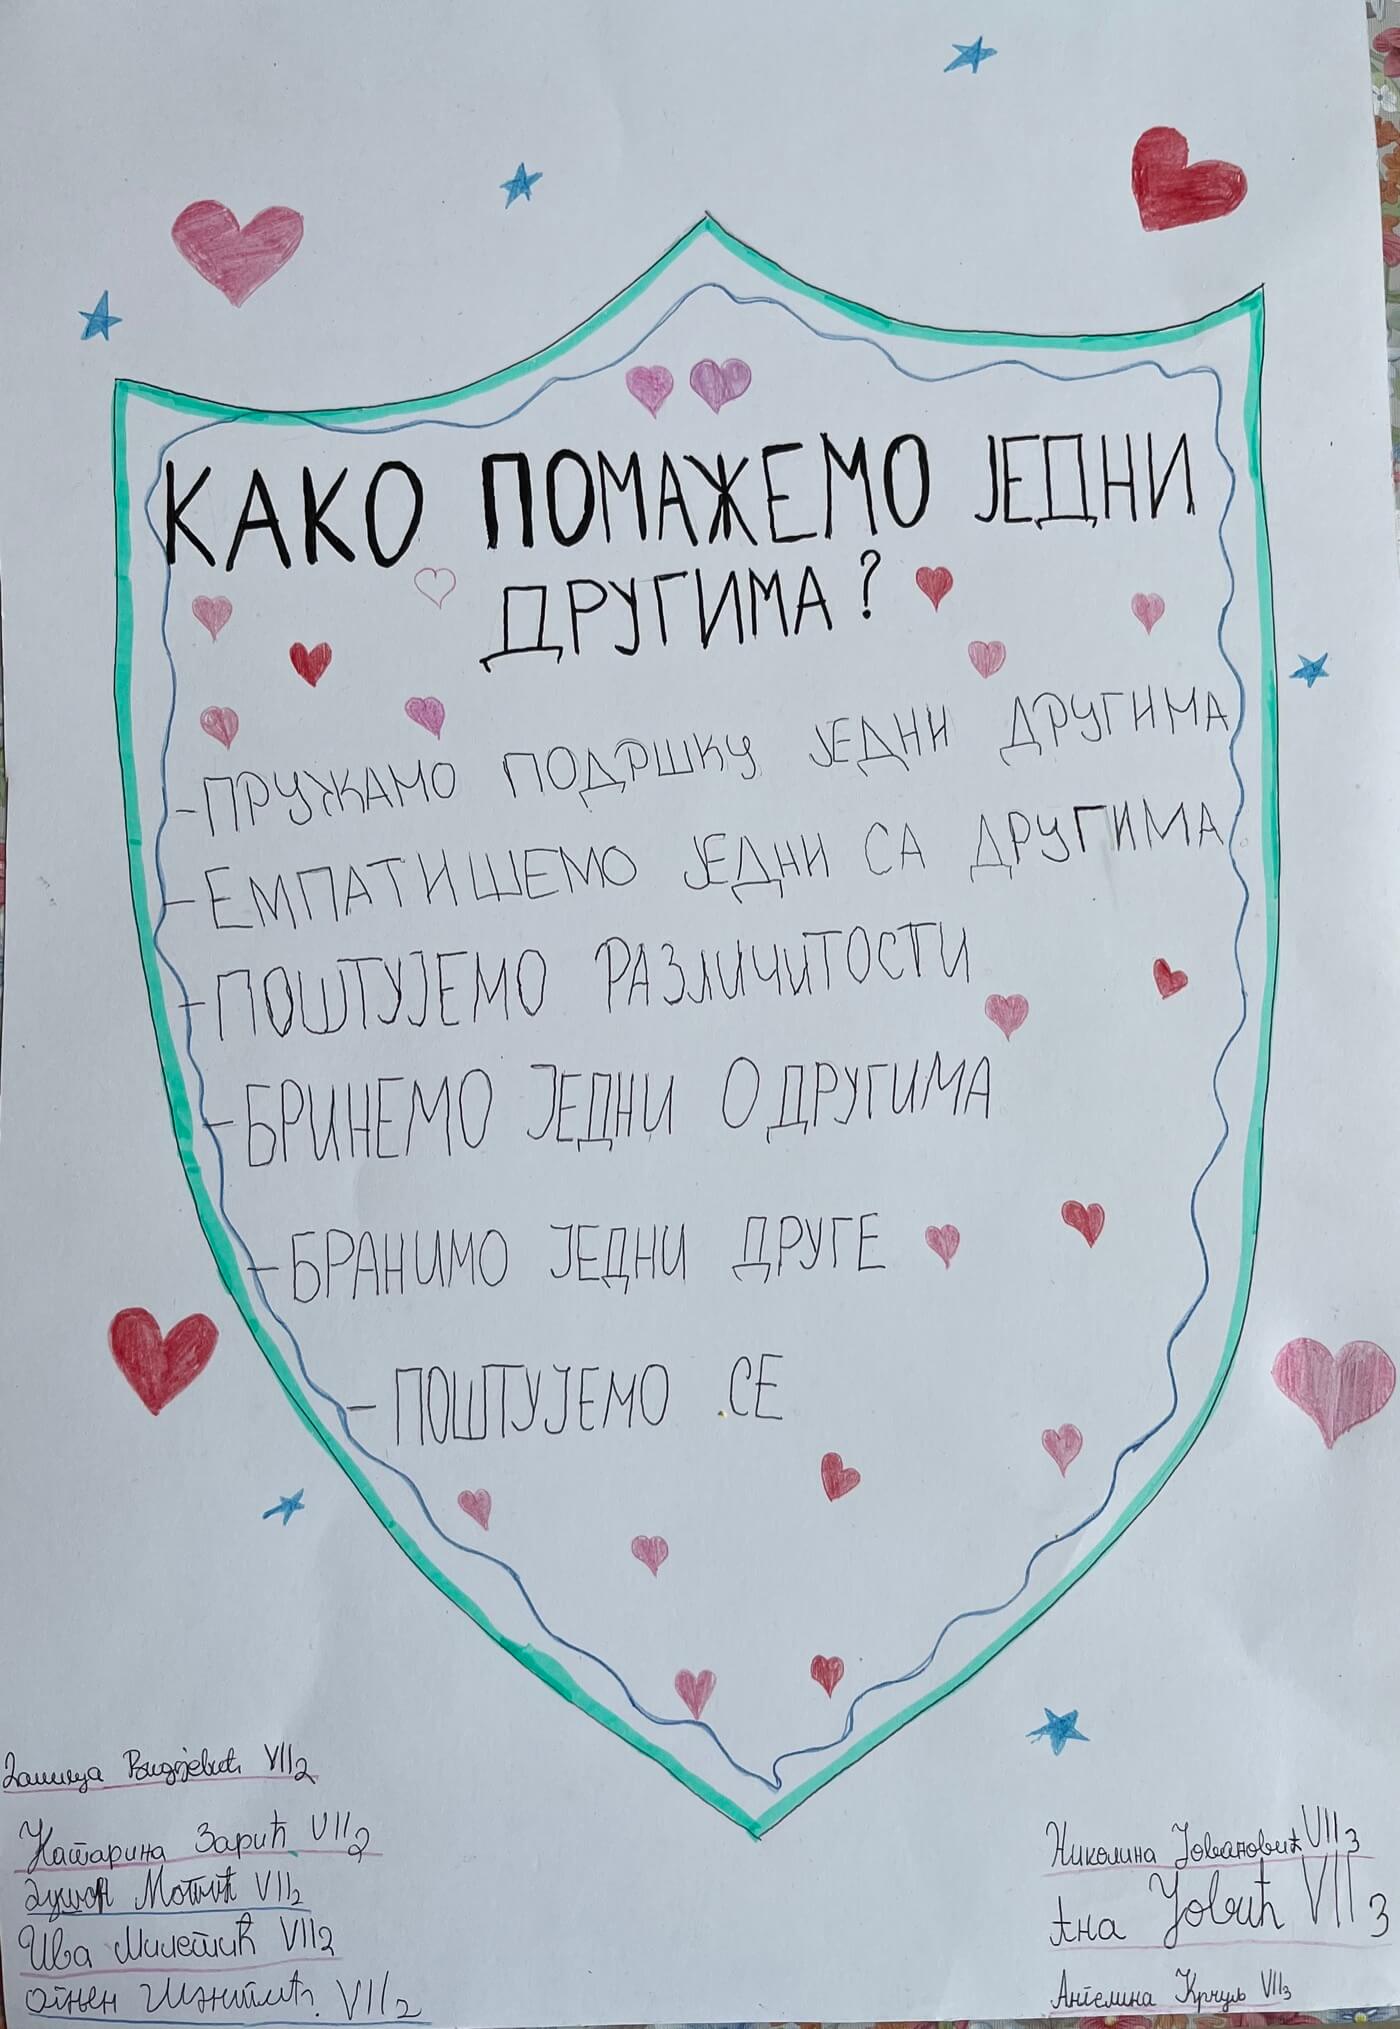 КАКО ПОМАЖЕМО ЈЕДНИ
ДРУГИМА?
-ПРУЖАМО ПОДРШКУ ЈЕДНИ ДРУГИМА
-ЕМПАТИШЕМО ЈЕДНИ СА ДРУГИМА
-ПОШТУЈЕМО РАЗЛИЧИТОСТИ
-БРИНЕМО ЈЕДНИ О ДРУГИМА
-БРАНИМО ЈЕДНИ ДРУГЕ
-ПОШТУЈЕМО СЕ
VII2
Катарина Зарић VII2
VII2
Ива Милетић VII2
Огњен VII2
Николина Јовановић VII3
Ана Јовић VII3
Ангелина Крчуљ VII3